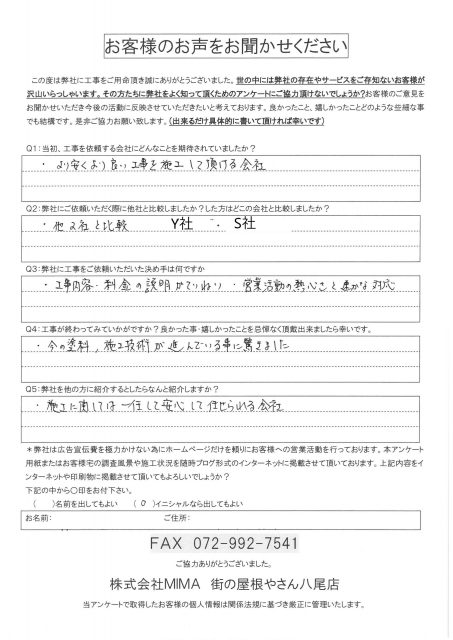 お客様のお声をお聞かせください
この度は弊社に工事をご用命頂き誠にありがとうございました。世の中には弊社の存在やサービスをご存知ないお客様が
沢山いらっしゃいます。その方たちに弊社をよく知って頂くためのアンケートにご協力頂けないでしょうか?お客様のご意見を
お聞かせいただき今後の活動に反映させていただきたいと考えております。良かったこと、嬉しかったことどのような些細な事
でも結構です。是非ご協力お願い致します。(出来るだけ具体的に書いて頂ければ幸いです)
Q1:当初、工事を依頼する会社にどんなことを期待されていましたか?
・より安くより良い工事を施工して頂ける会社
Q2:弊社にご依頼いただく際に他社と比較しましたか?した方はどこの会社と比較しましたか?
・他2社と比較 Y社 ・ S社
Q3:弊社に工事をご依頼いただいた決め手は何ですか
・工事内容・料金の説明がていねい ・営業活動の熱心さと 対応
Q4:工事が終わってみていかがですか?良かった事・嬉しかったことを忌憚なく頂戴出来ましたら幸いです。
・今の塗料,施工技術が進んでいる事に驚きました
Q5:弊社を他の方に紹介するとしたらなんと紹介しますか?
・施工に関しては一任して安心して任せられる会社
*弊社は広告宣伝費を極力かけない為にホームページだけを頼りにお客様への営業活動を行っております。本アンケート
用紙またはお客様宅の調査風景や施工状況を随時ブログ形式のインターネットに掲載させて頂いております。上記内容をイ
ンターネットや印刷物に掲載させて頂いてもよろしいでしょうか?
下記の中から〇印をお付下さい。
( )名前を出してもよい ( 0 )イニシャルなら出してもよい
お名前: ご住所:
FAX 072-992-7541
ご協力ありがとうございました。
株式会社MIMA 街の屋根やさん八尾店
当アンケートで取得したお客様の個人情報は関係法規に基づき厳正に管理いたします。